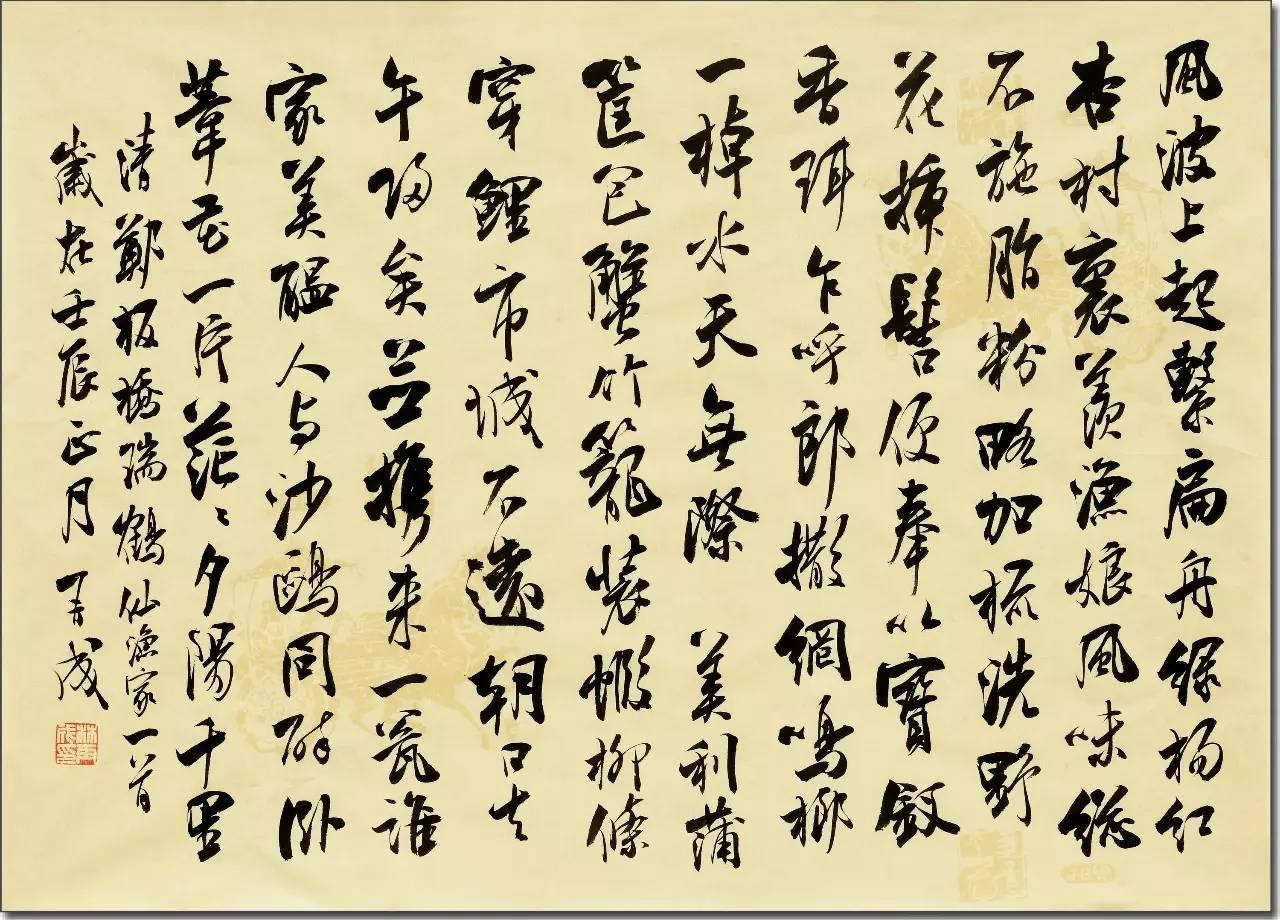 風波上起繫扁舟綠楊紅
杏村裏羨漁娘風味總
不施脂粉略加梳洗野
花插髻便奉以寶釵
香珥乍呼郎撒網鳴榔
一棹水天無際 美利蒲
筐包蟹竹籠裝蝦柳條
穿鯉市城不遠朝日去
午歸矣並攜來一甕誰
家美醞人与沙鷗同醉卧
葦花一片茫〻夕陽千里
清鄭板橋瑞鶴仙漁家一首
歲在壬辰正月 成